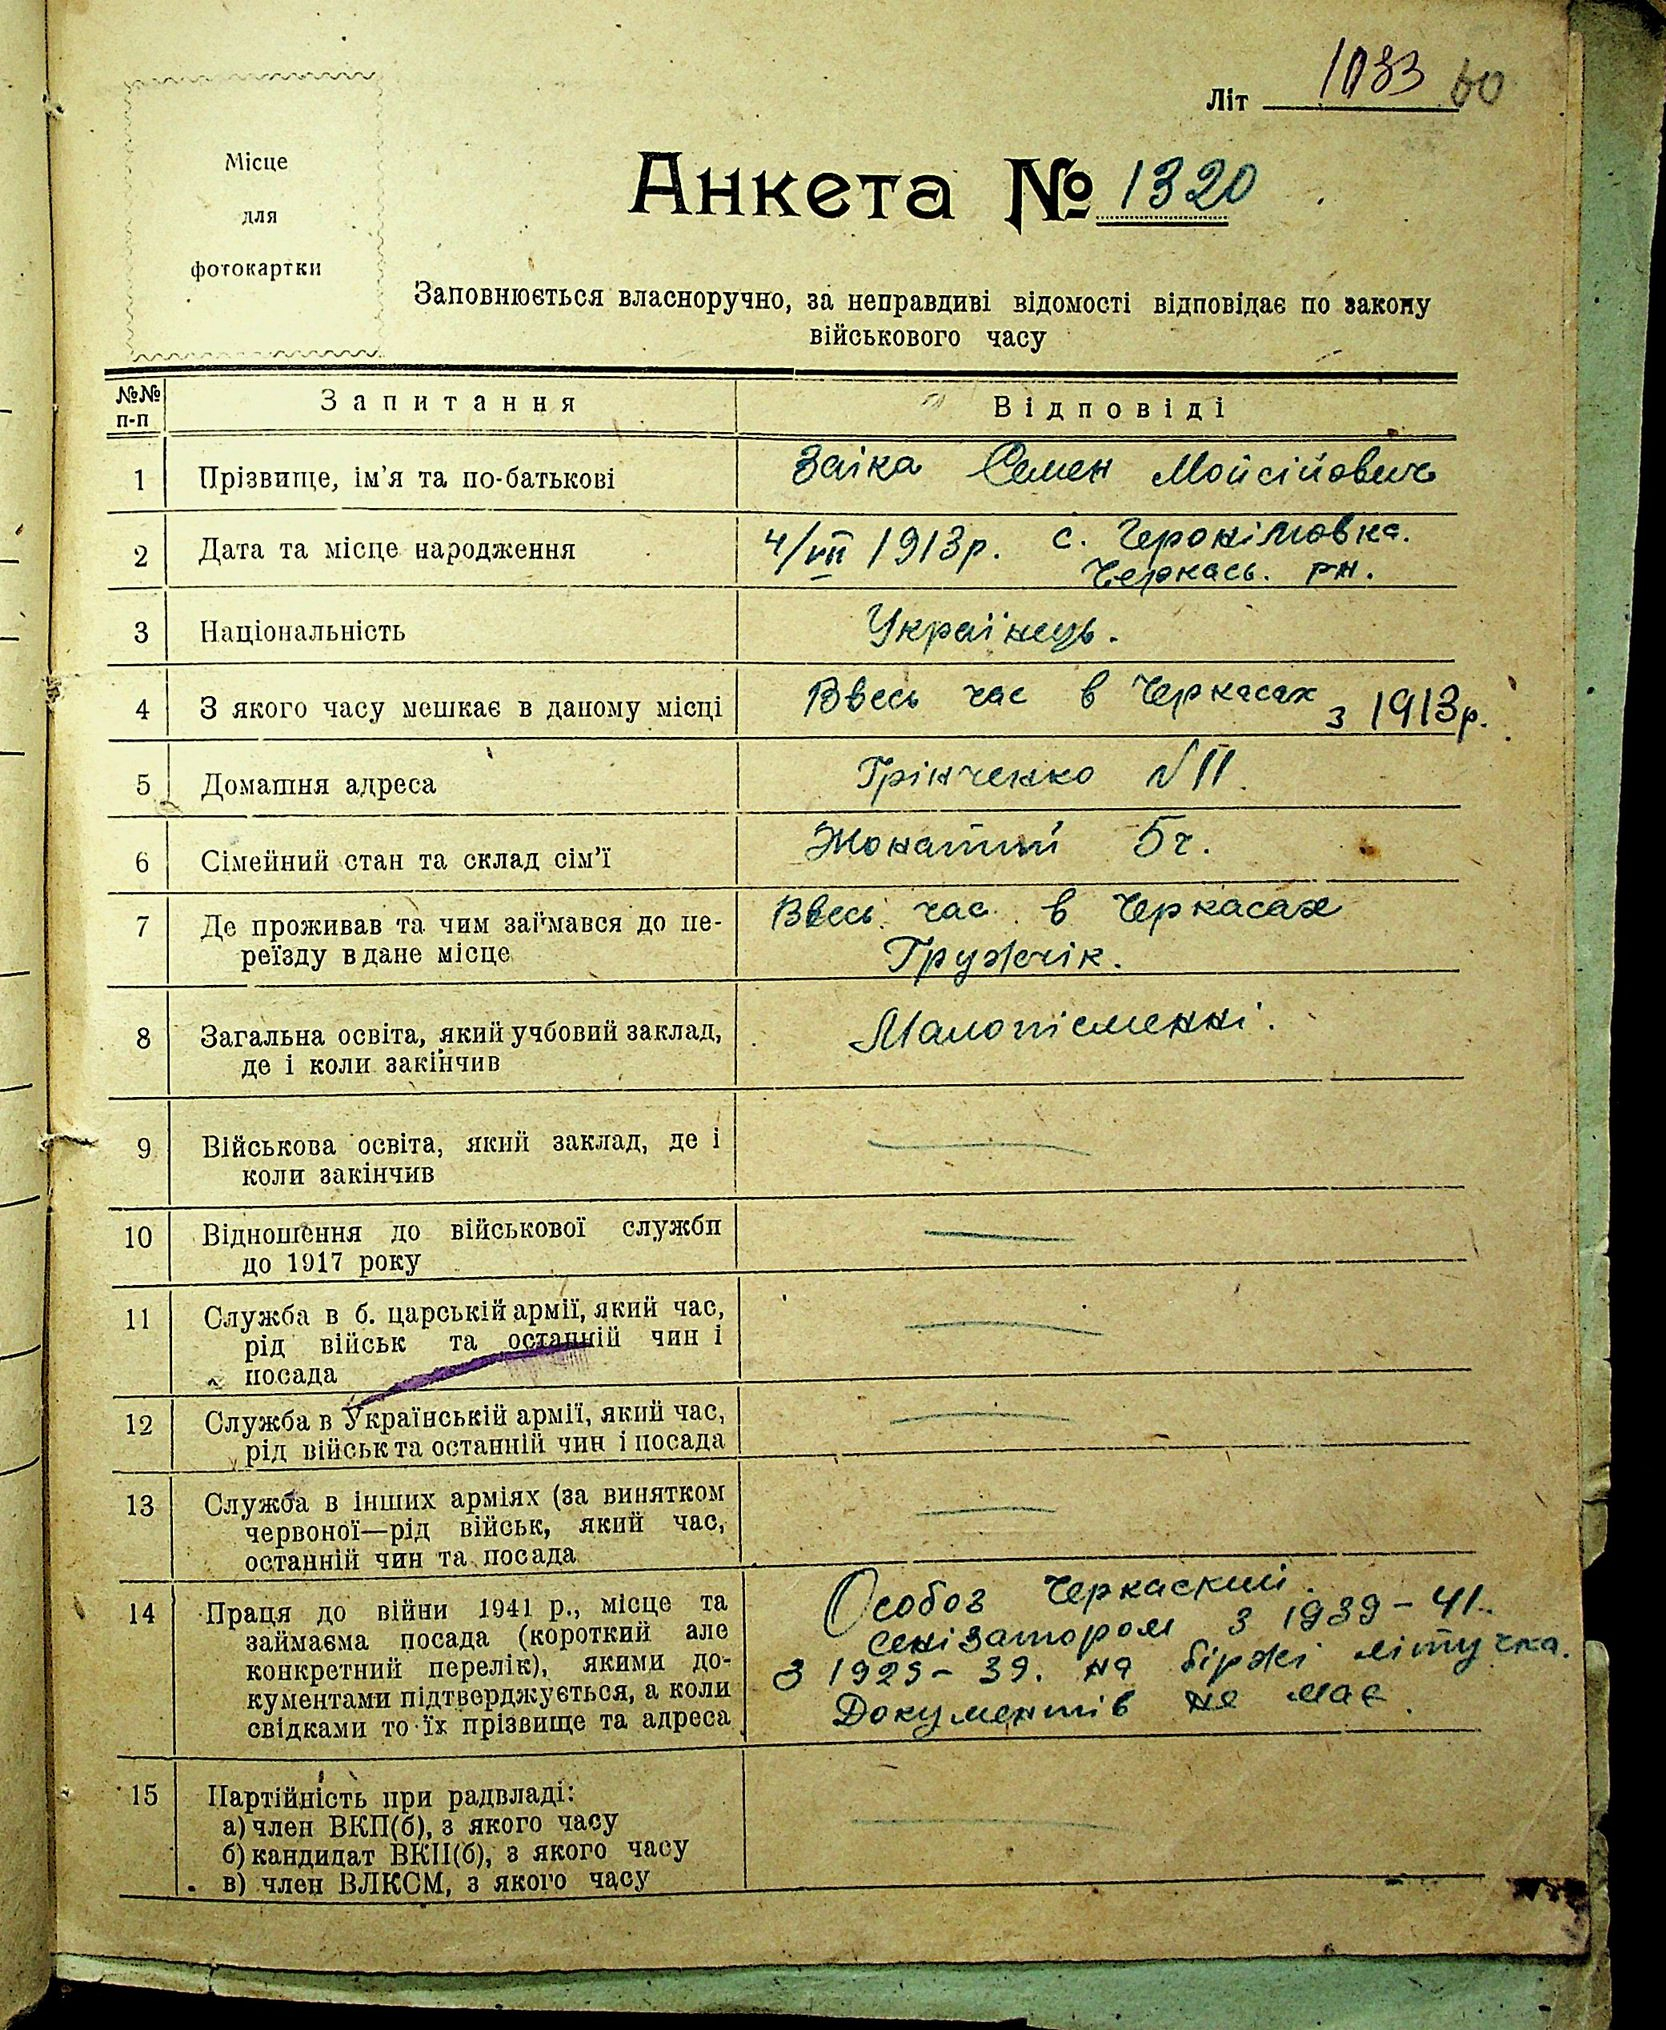 Літ 1033 60
Місце
для
фотокартки
Анкета № 1320
Заповнюється власноручно, за неправдиві відомості відповідає по закону
військового часу
№№ п-п Запитання Відповіді
1 Прізвище, ім'я та по-батькові Заіка Семен Мойсійович
2 Дата та місце народження 4/VII 1913р. с. Геронімовка.
Черкась. рн.
3 Національність Українець.
4 З якого часу мешкає в даному місці Ввесь час в Черкасах з 1913р.
5 Домашня адреса Грінченко N 11.
6 Сімейний стан та склад сім'ї Жонатий 5 ч.
7 Де проживав та чим займався до пе- Ввесь час в Черкасах
реїзду в дане місце Гружчік.
8 Загальна освіта, який учбовий заклад, Малопісменні.
де і коли закінчив
9 Військова освіта, який заклад, де і
коли закінчив
10 Відношення до військової служби
до 1917 року
11 Служба в б. царській армії, який час,
рід військ та останній чин і
посада
12 Служба в Українській армії, який час,
рід військ та останній чин і посада
13 Служба в інших арміях (за винятком
червоної—рід військ, який час,
останній чин та посада
14 Праця до війни 1941 р., місце та Особоз Черкаский.
займаєма посада (короткий але сенізатором з 1939-41.
конкретний перелік), якими до- З 1929-39. на біржі літучка.
кументами підтверджується, а коли Документів не має.
свідками то їх прізвище та адреса
15 Партійність при радвладі:
а) член ВКП(б), з якого часу
б) кандидат ВКП(б), з якого часу
в) член ВЛКСМ, з якого часу